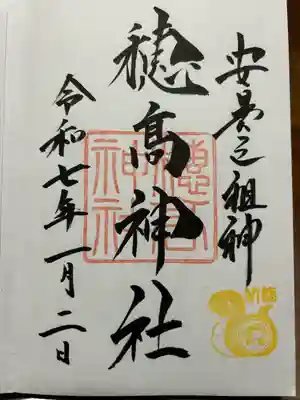 安曇之祖神
穂高神社
令和七年一月二日
穂高
神社